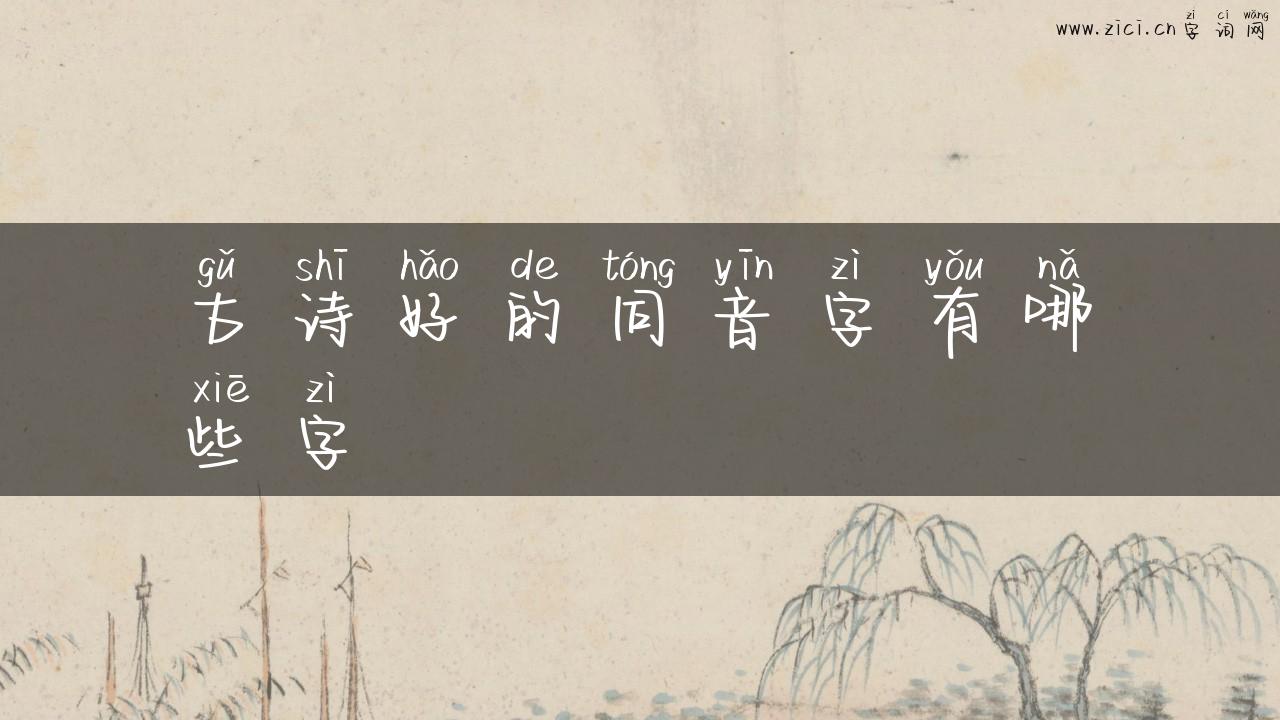 zì cí wǎng
www.zici.cn字词网
gǔ shī hǎo de tóng yīn zì yǒu nǎ
古诗好的同音字有哪
xiē zì
些字